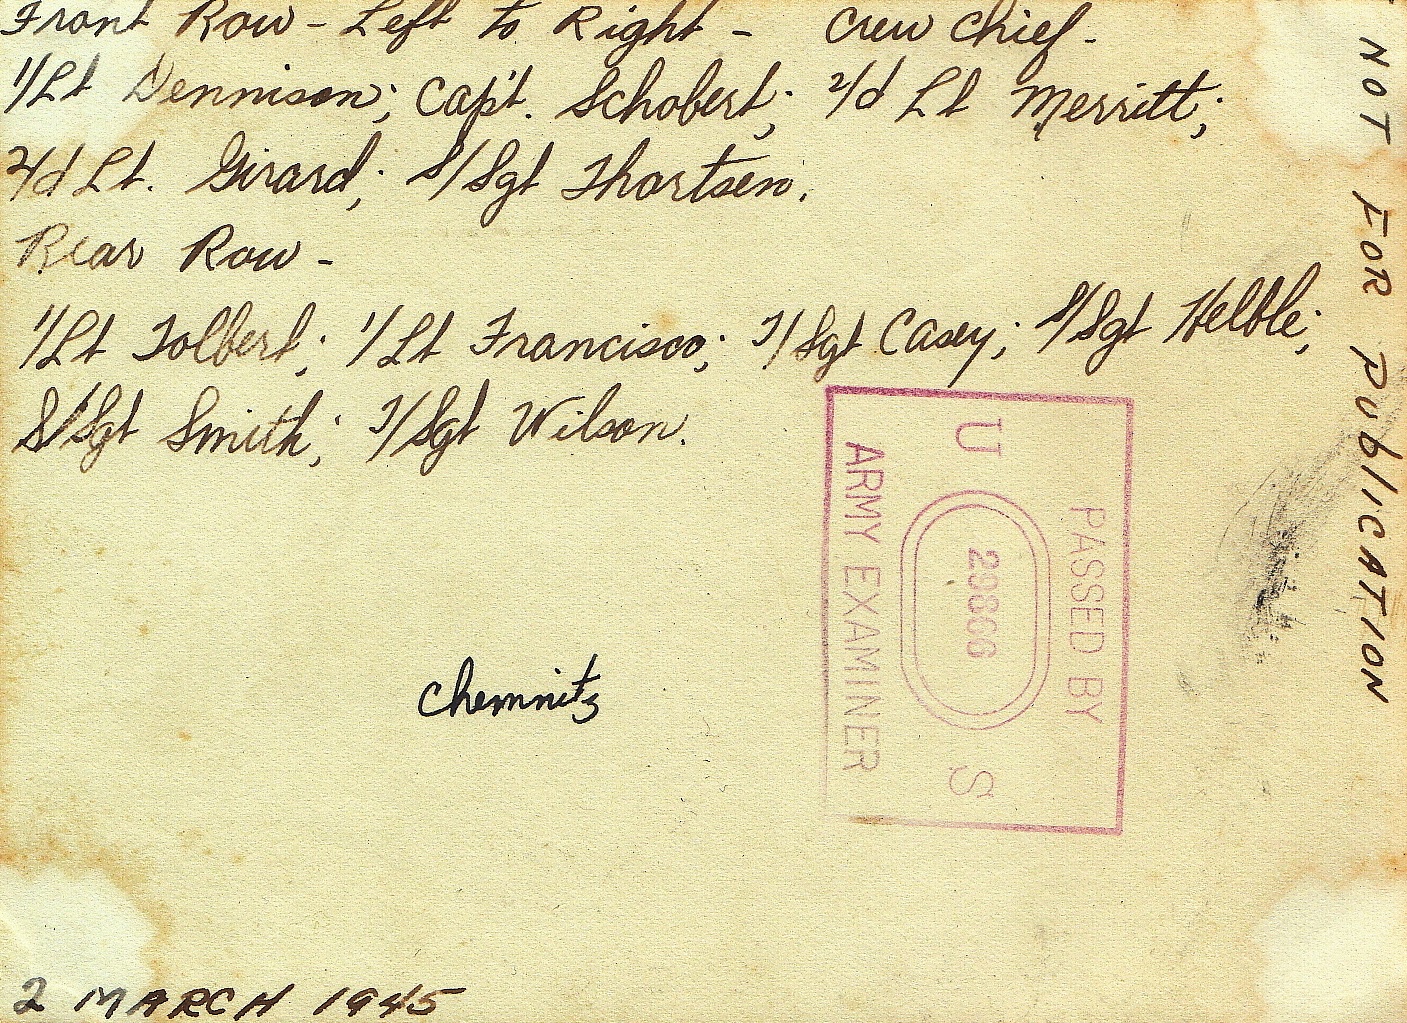 Front Row - Left to Right - Crew Chief -
1/Lt Dennison; Capt. Schobert; 2/d Lt Merritt;
2/d Lt. Girard; S/Sgt Thortsen.
Rear Row -
1/Lt Tolbert; 1/Lt Francisco; T/Sgt Casey; S/Sgt Helble;
S/Sgt Smith; T/Sgt Wilson.
NOT FOR PUBLICATION
PASSED BY
U 29866 S
ARMY EXAMINER
Chemnitz
2 MARCH 1945